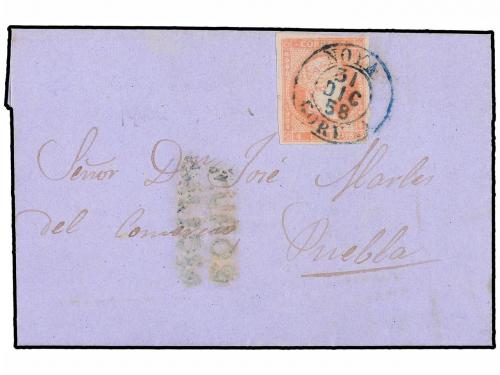 CORREOS
NOYA
31
DIC
58
CORUÑA
Señor Don José Marles
del Comercio
Puebla